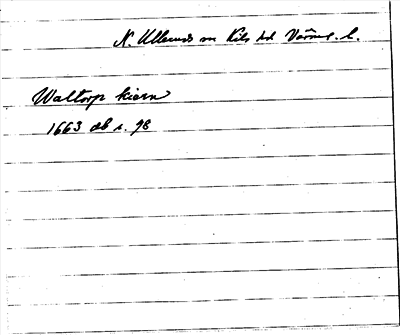 N. Ullerud sn Kils hd Värml. l.
Waltorp kiern
1663 db s. 98